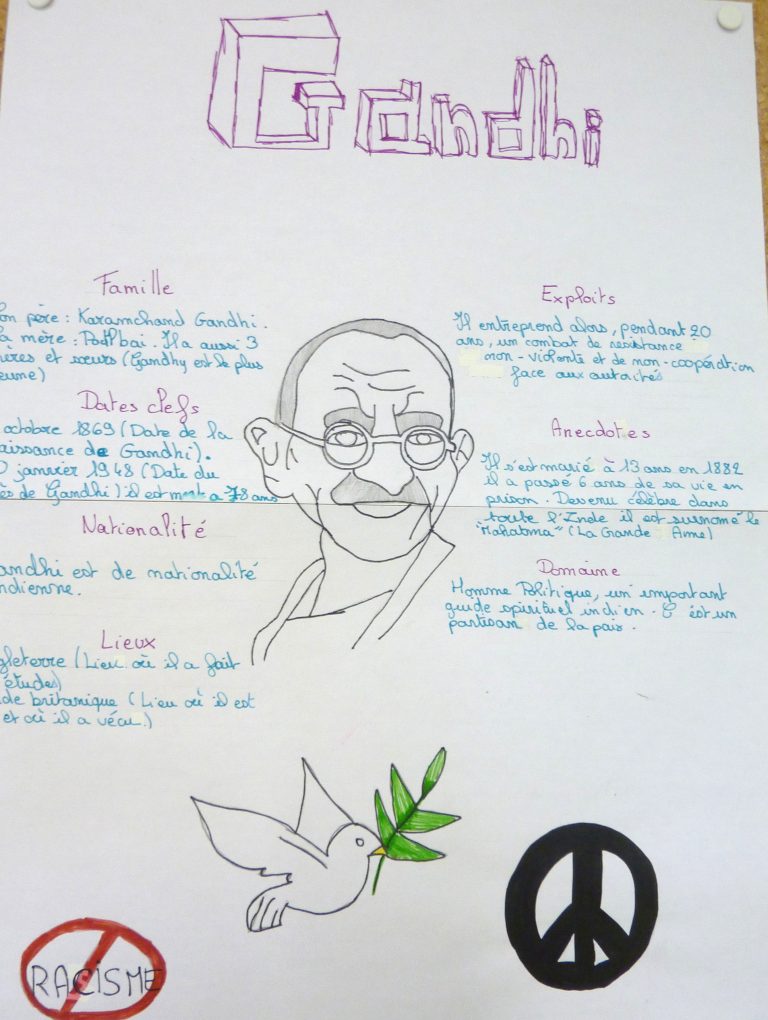 Gandhi
Famille
on père : Karamchand Gandhi.
a mère : Putlibai. Il a aussi 3
ères et sœurs (Gandhy est le plus
eune)
Dates clefs
octobre 1869 (Date de la
aissance de Gandhi).
0 janvier 1948 (Date du
ès de Gandhi) il est mort a 78 ans
Nationalité
andhi est de nationalité
ndienne.
Lieux
gleterre (Lieu où il a fait
études)
de britanique (Lieu où il est
et où il a vécu.)
Exploits
Il entreprend alors, pendant 20
ans, un combat de resistance
non-violente et de non-coopération
face aux autorités
Anecdotes
Il s'est marié à 13 ans en 1882
il a passé 6 ans de sa vie en
prison. Devenu célèbre dans
toute l'Inde il est surnomé le
"Mahatma" (La Grande Ame)
Domaine
Homme Politique, un important
guide spirituel indien. C'est un
partisan de la paix.
RACISME